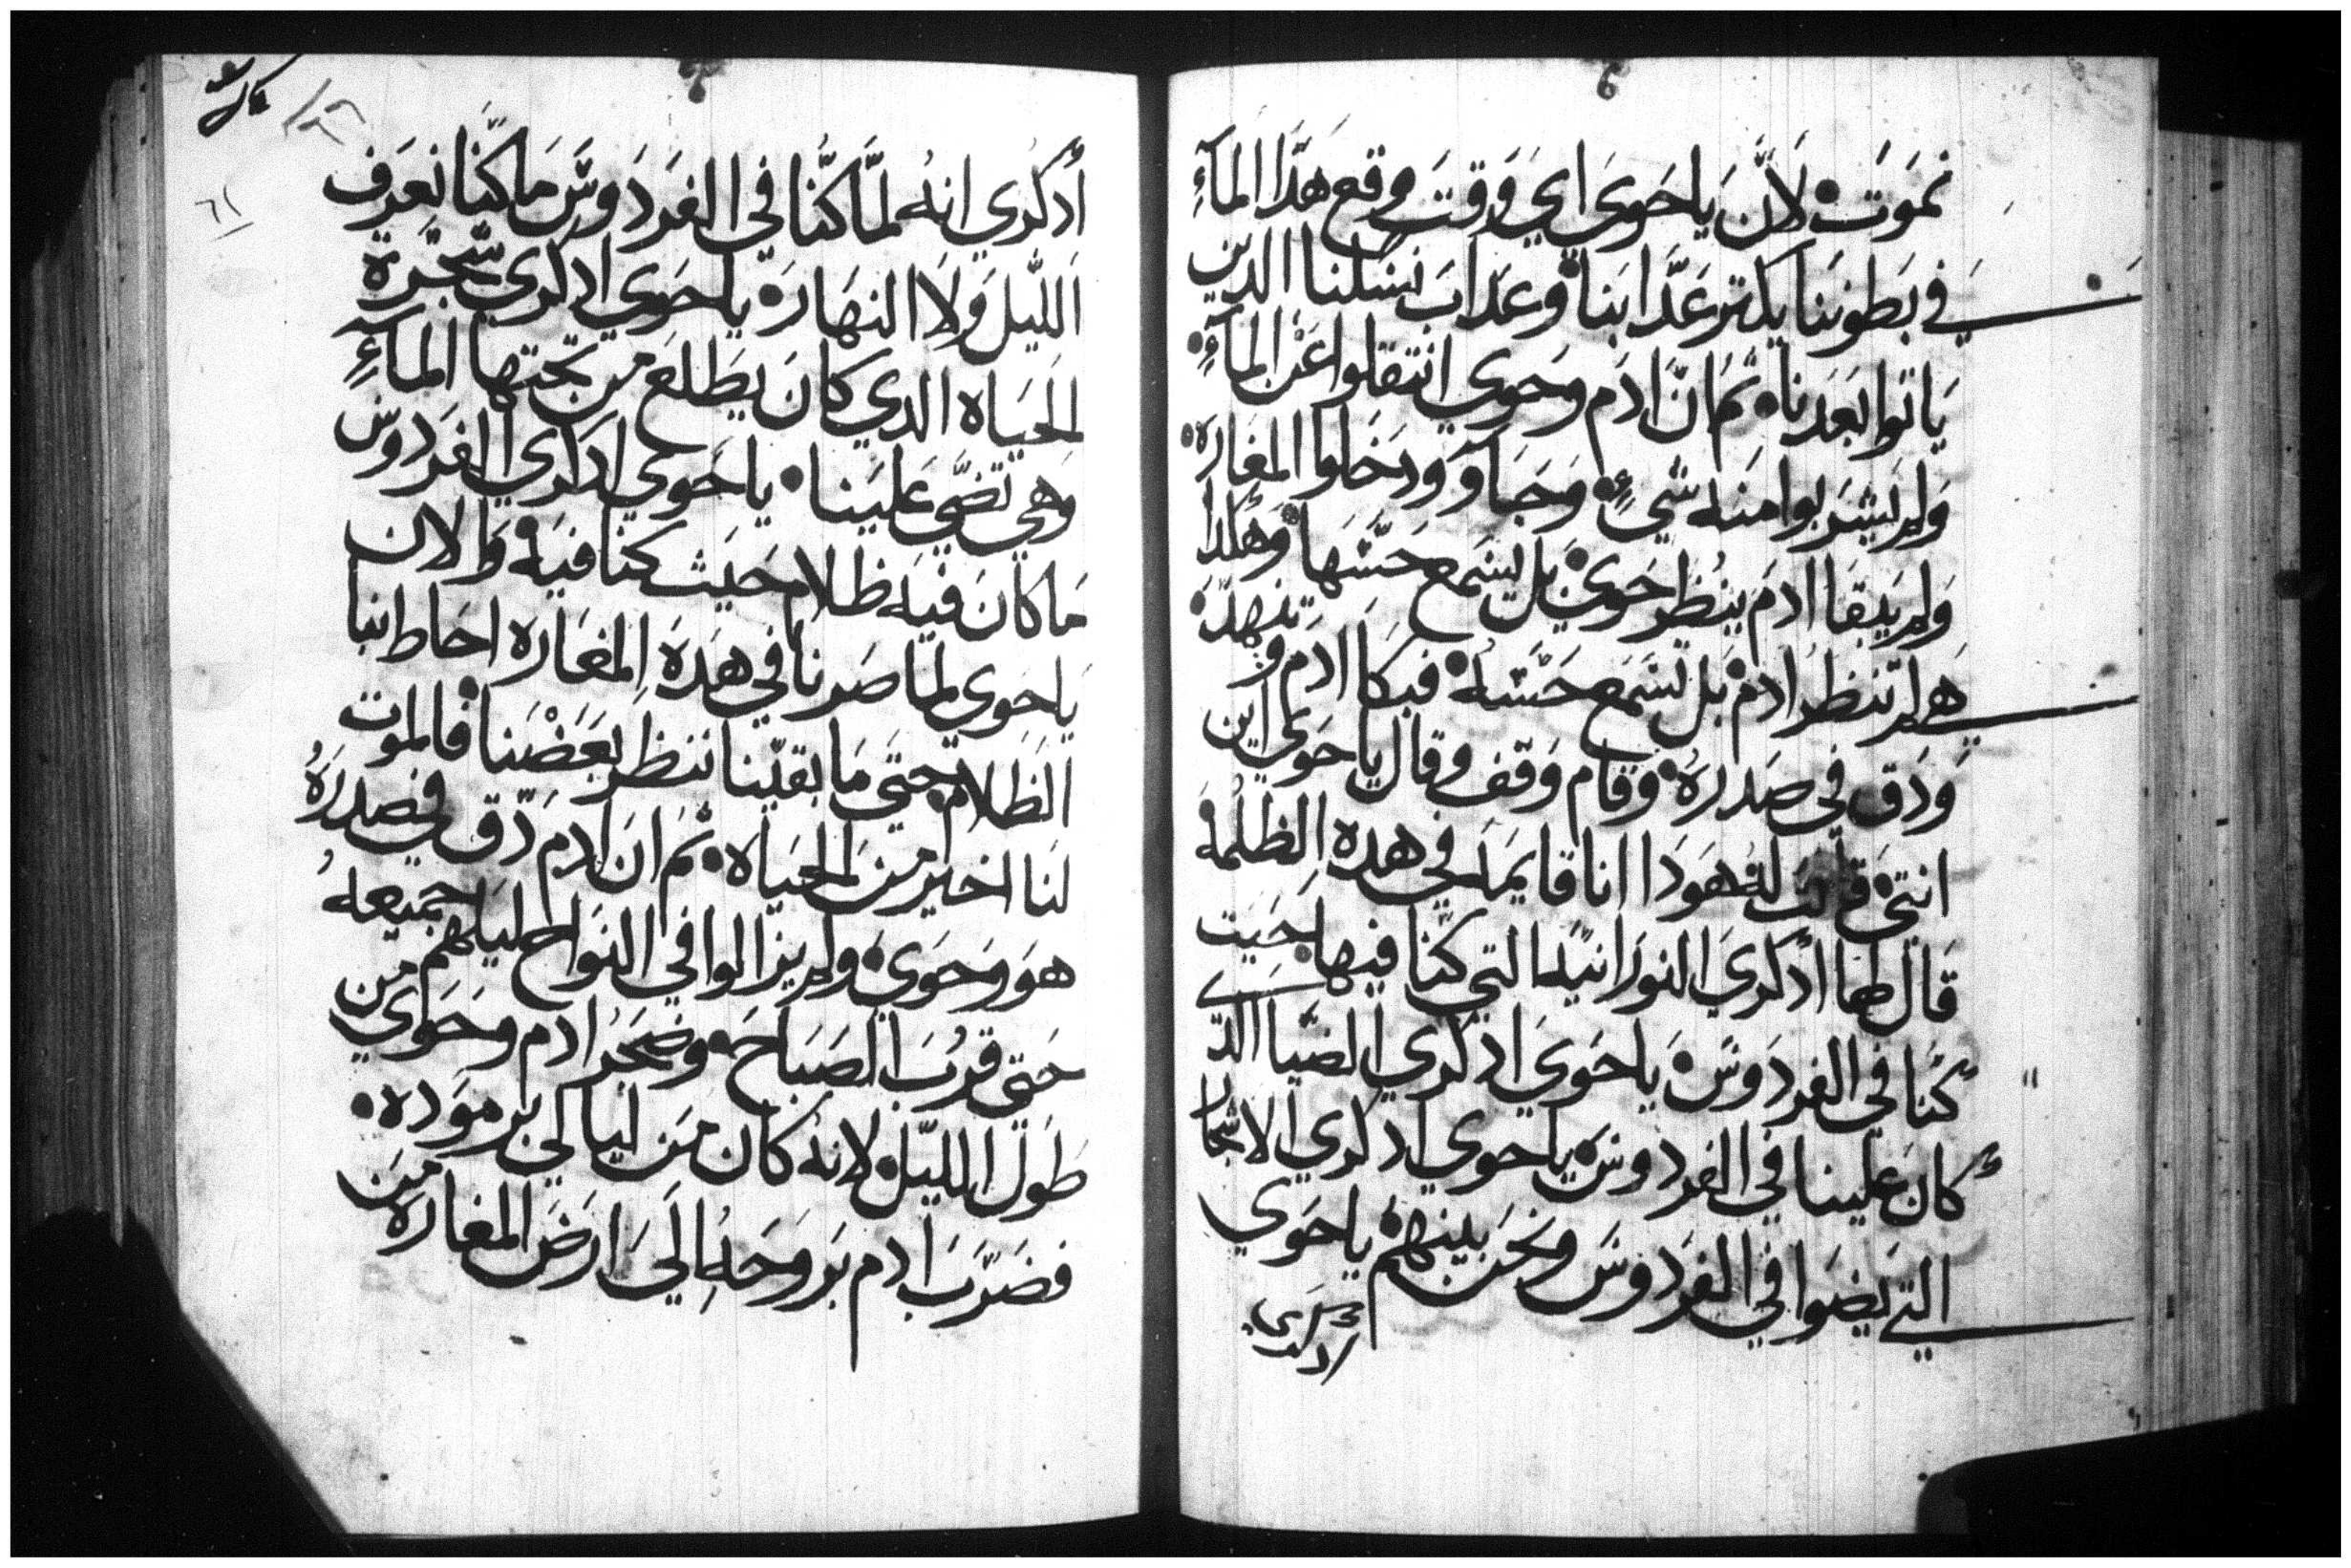 نموت لان يا حوي اي وقت وقع هدا المآء
في بطوننا يكتر عدابنا وعداب نسلنا الدين
ياتوا بعدنا ثم ان ادم وحوي انتقلوا عن المآء
ولم يشربوا منه شيء وجاو ودخلوا المغاره
ولم يبقا ادم ينظر حوي بل يسمع حسها وهكدا
هي لم تنظر ادم بل تسمع حسه فبكا ادم وتنهد
ودق في صدره وقام وقف وقال يا حوي اين
انتي قالت له هودا انا قايمه في هده الظلمه
قال لها أدكري النورانيه التي كنا فيها حيت
كنا في الفردوس يا حوي ادكري الضيا الدي
كان علينا في الفردوس يا حوي ادكري الاشجار
التي يضوا في الفردوس ونحن بينهم يا حوي
ادكري
أدكري انه لما كنا في الفردوس ما كنا نعرف
الليل ولا النهار يا حوي ادكري شجرة
الحياه الدي كان يطلع من تحتها المآء
وهي تضي علينا يا حوي ادكري الفردوس
ما كان فيه ظلام حيث كنا فيه والان
يا حوي لما صرنا في هده المغاره احاط بنا
الظلام حتى ما بقينا ننظر بعضنا فالموت
لنا اخير من الحياه ثم ان ادم دق في صدره
هو وحوي ولم يزالوا في النواح ليلهم جميعه
حتى قرب الصباح وضجر ادم وحوي من
طول الليل لانه كان من ليالي برموده
فضرب ادم بروحه الى ارض المغاره من